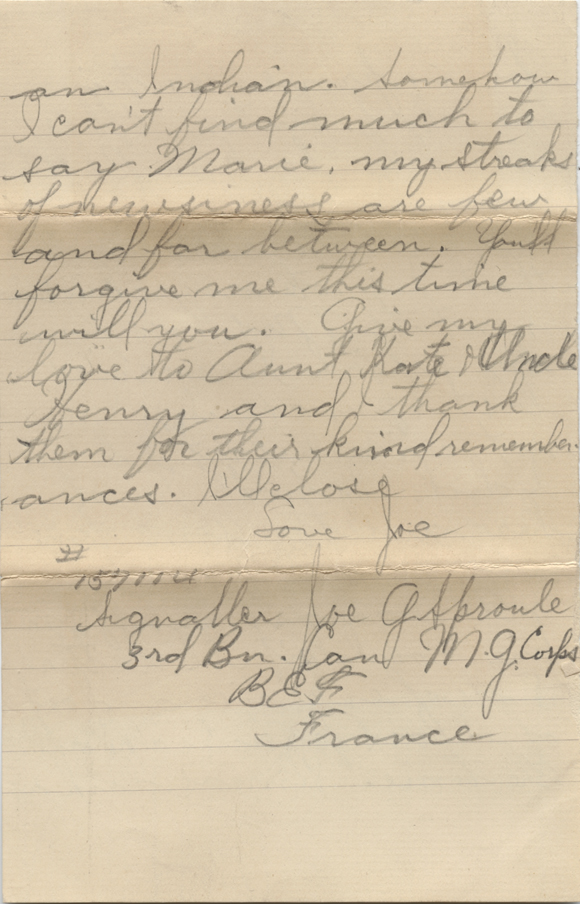 an Indian. Somehow
I can't find much to
say Marie, my streaks
of newsiness are few
and far between. You'll
forgive me this time
will you. Give my
love to Aunt Kate & Uncle
Henry and I thank
them for their kind remember-
ances. I'll close
Love Joe
#
157114
Signaller Joe G Sproule
3rd Bn. Can M.G. Corps
BEF
France